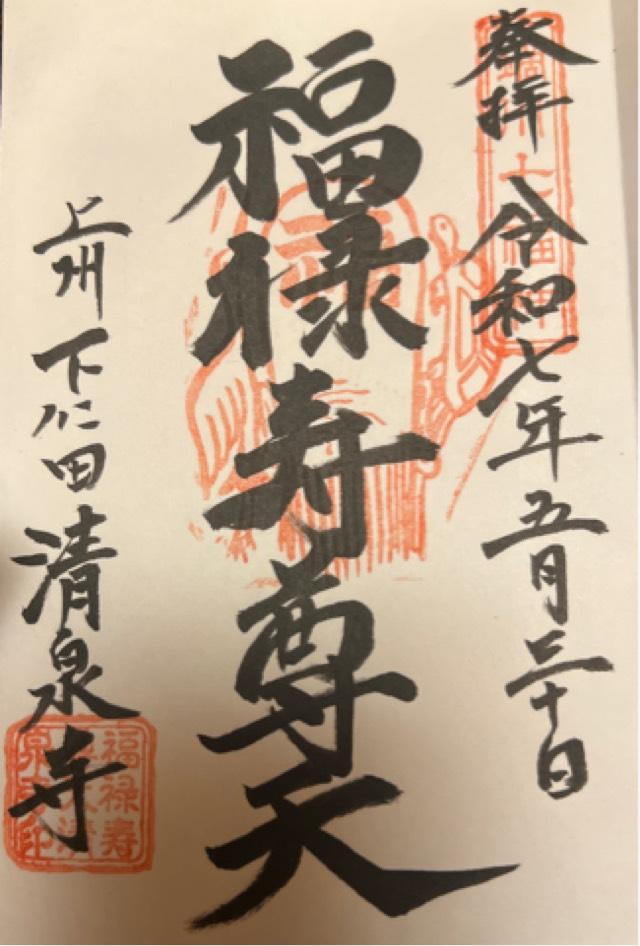 奉拝 令和七年五月三十日
福禄寿尊天
上州 下仁田 清泉寺